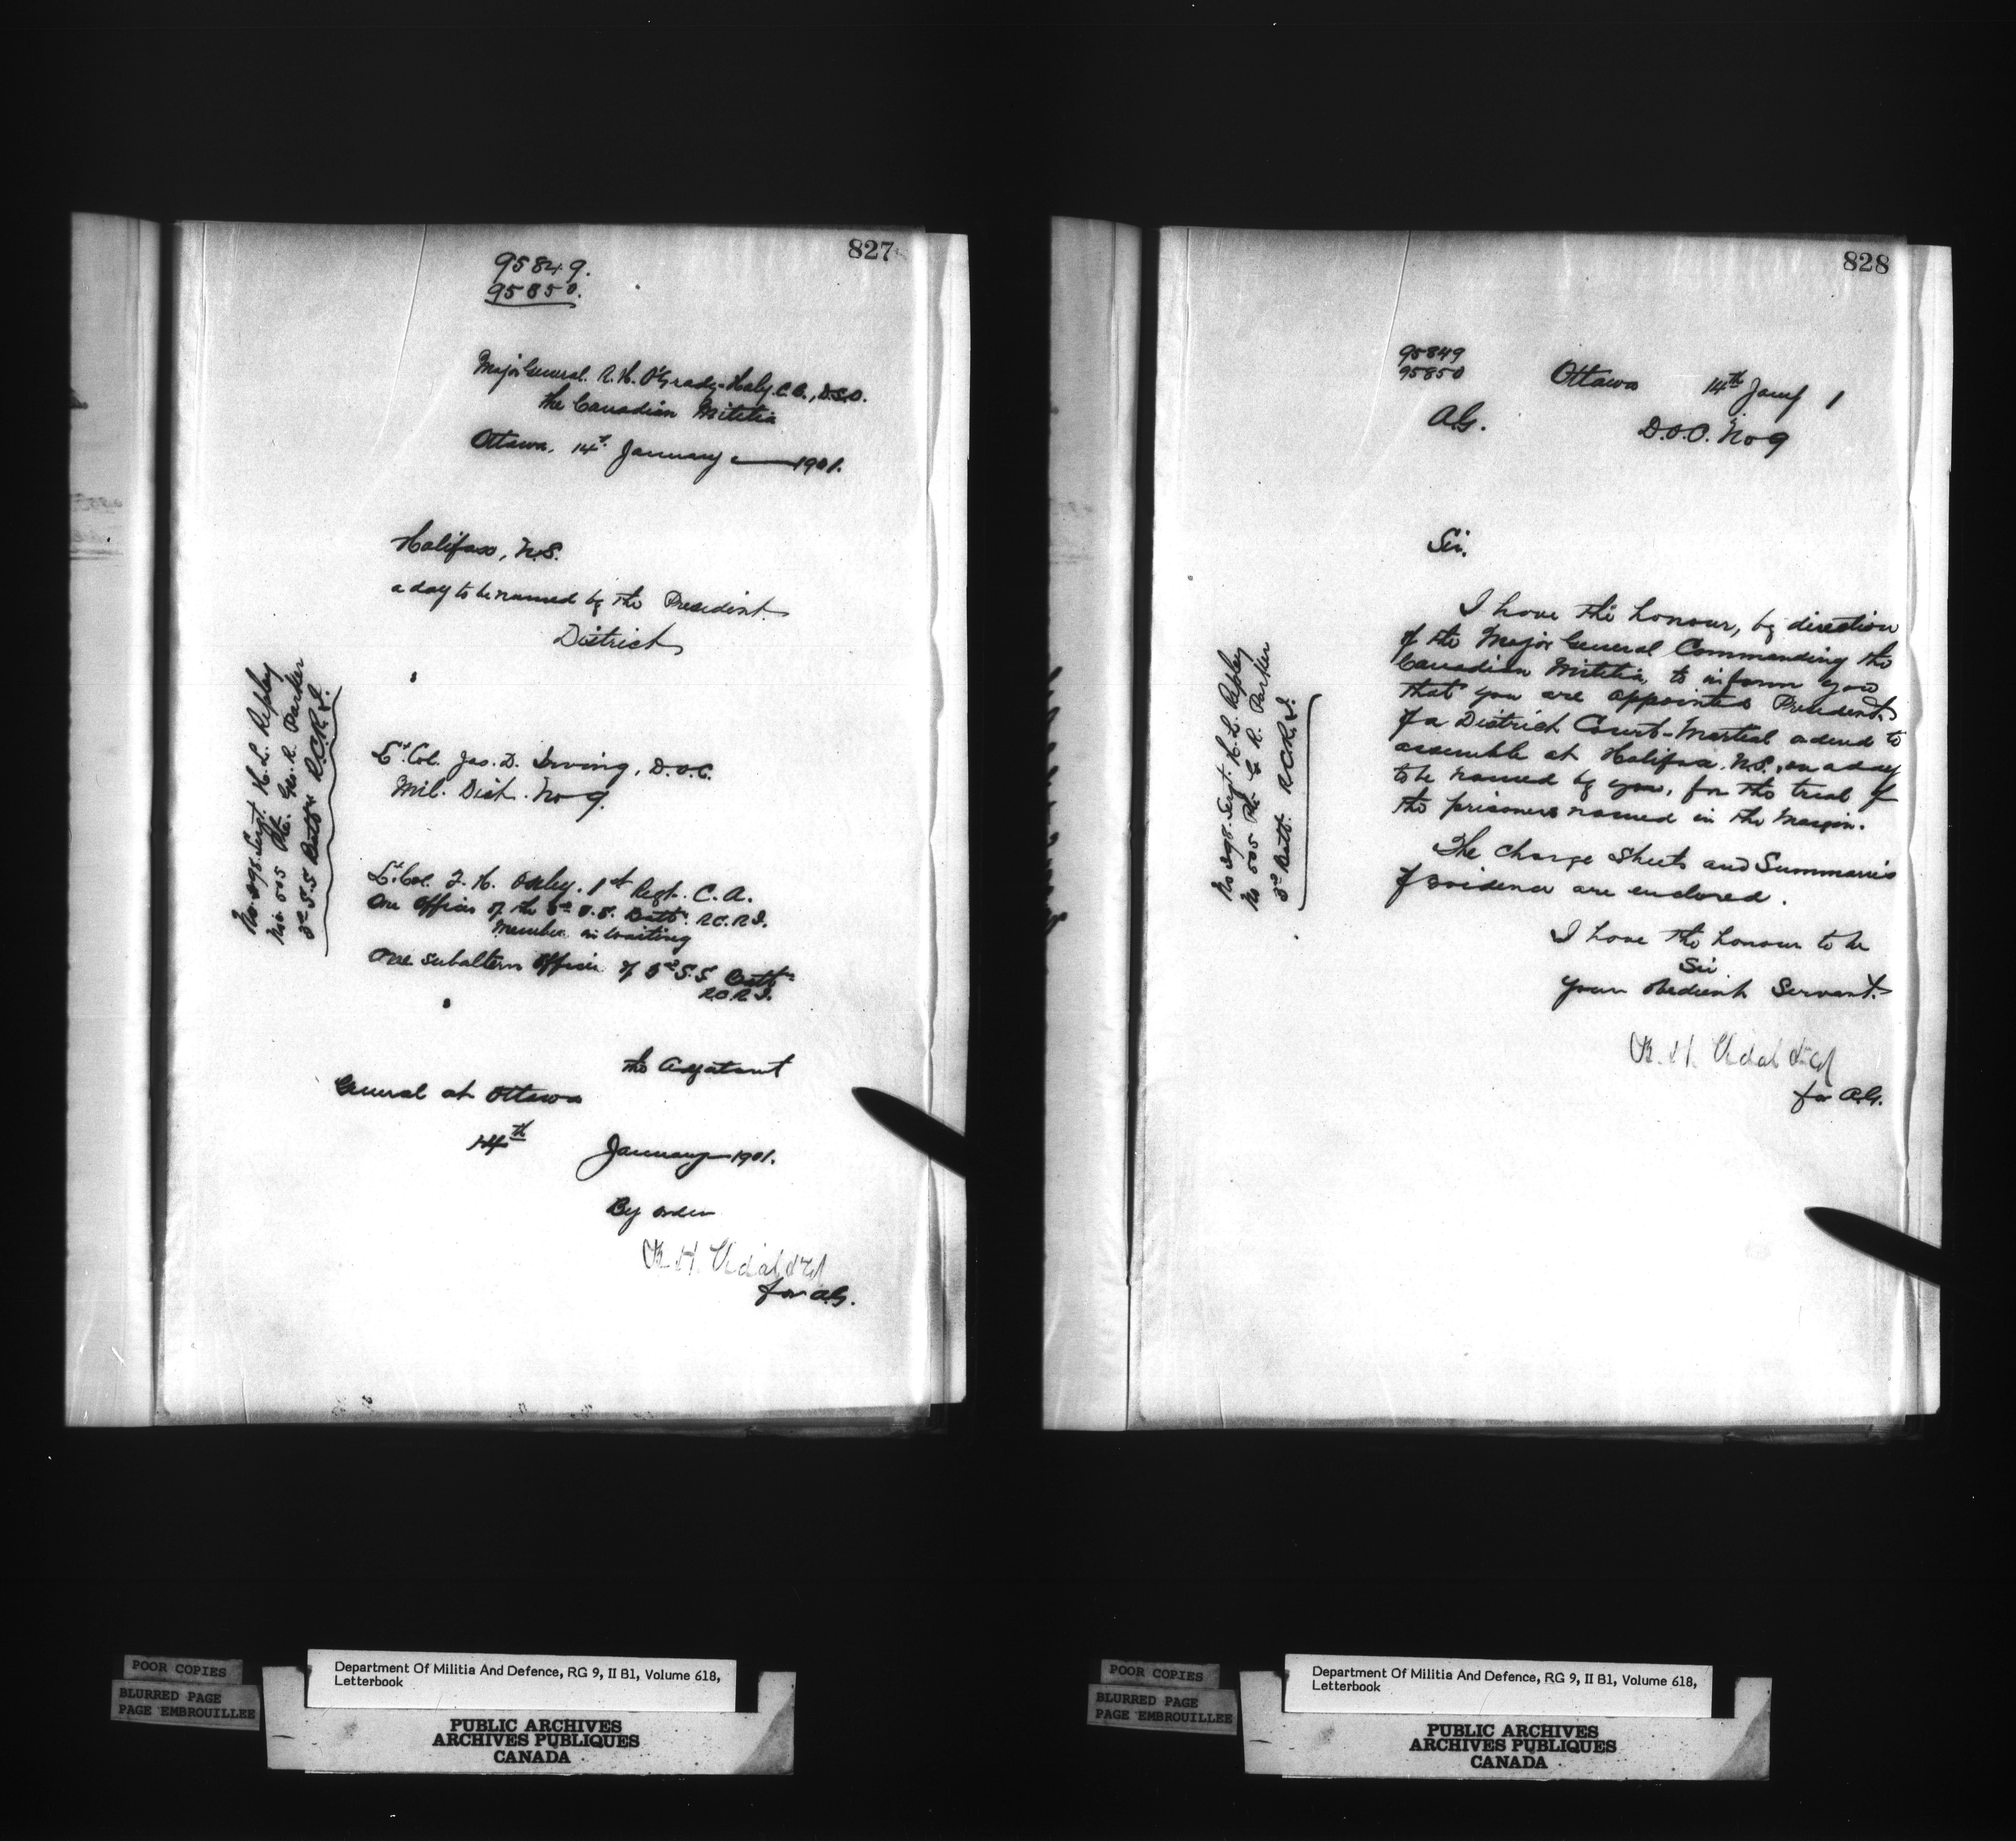 827
95849.
95850.
Major General R. H. O'Grady-Haly. C.B., D.S.O.
the Canadian Militia
Ottawa, 14th January 1901.
Halifax, N.S.
a day to be named by the President
District
No. 298 Sergt. H. L. Repley
No. 505 Pte. Geo. R. Parker
3rd S.S. Battn R.C.R.I.
Lt. Col. Jas. D. Irving, D.O.C.
Mil. Dist. No 9.
Lt. Col. F. H. Oxley. 1st Regt. C.A.
One Officer of the 3rd S.S. Battn. R.C.R.I.
Member in waiting
One subaltern officer of 3rd S.S. Battn
R.C.R.I.
the Adjutant
General at Ottawa
14th January 1901.
By order
B. H. Vidal Lt Col
for A.G.
828
95849
95850
Ottawa 14th Jany 1
A.G.
D.O.C. No 9
Sir.
No 298 Sergt. H. L. Repley
No 505 Pte. G. R. Parker
3rd Batt. R.C.R.I.
I have the honour, by direction
of the Major General Commanding the
Canadian Militia, to inform you
that you are appointed President
of a District Court-Martial ordered to
assemble at Halifax. N.S., on a day
to be named by you, for the trial of
the prisoners named in the Margin.
The charge sheets and Summaries
of evidence are enclosed.
I have the honour to be
Sir
Your obedient Servant.
B. H. Vidal Lt Col
for A.G.
POOR COPIES
BLURRED PAGE
PAGE EMBROUILLEE
Department Of Militia And Defence, RG 9, II B1, Volume 618,
Letterbook
PUBLIC ARCHIVES
ARCHIVES PUBLIQUES
CANADA
POOR COPIES
BLURRED PAGE
PAGE EMBROUILLEE
Department Of Militia And Defence, RG 9, II B1, Volume 618,
Letterbook
PUBLIC ARCHIVES
ARCHIVES PUBLIQUES
CANADA